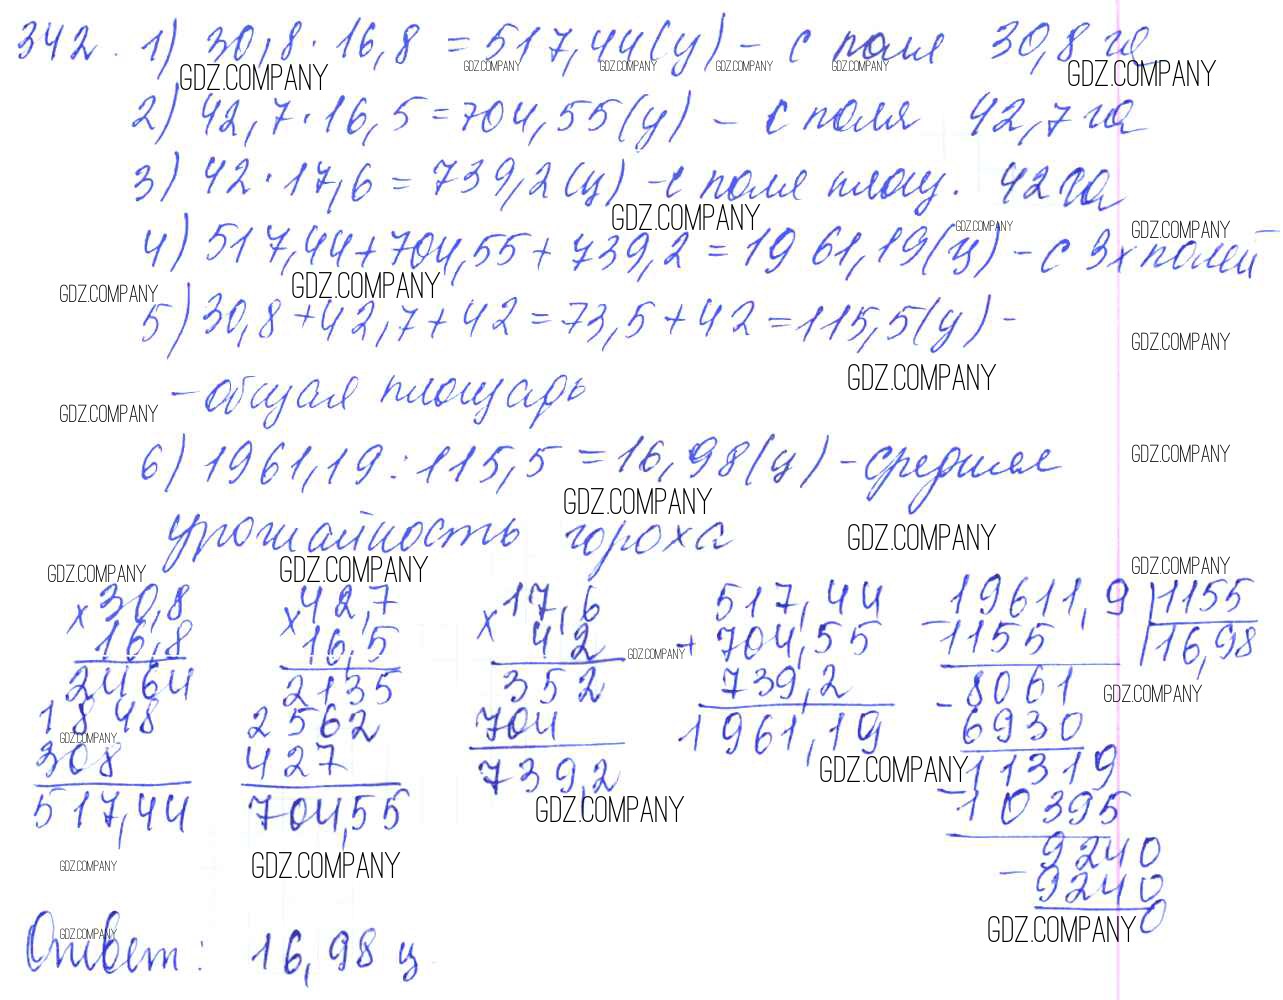 342. 1) 30,8 · 16,8 = 517,44 (ц) – с поля 30,8 га
GDZ.COMPANY GDZ.COMPANY GDZ.COMPANY GDZ.COMPANY GDZ.COMPANY GDZ.COMPANY
2) 42,7 · 16,5 = 704,55 (ц) – с поля 42,7 га
3) 42 · 17,6 = 739,2 (ц) – с поля площ. 42 га
GDZ.COMPANY GDZ.COMPANY GDZ.COMPANY
4) 517,44 + 704,55 + 739,2 = 1961,19 (ц) – с 3х полей
GDZ.COMPANY GDZ.COMPANY
5) 30,8 + 42,7 + 42 = 73,5 + 42 = 115,5 (ц) –
GDZ.COMPANY
GDZ.COMPANY
– общая площадь
GDZ.COMPANY
6) 1961,19 : 115,5 = 16,98 (ц) – средняя
GDZ.COMPANY
GDZ.COMPANY
урожайность гороха
GDZ.COMPANY
GDZ.COMPANY GDZ.COMPANY GDZ.COMPANY
× 30,8 × 42,7 × 17,6 517,44 – 19611,9 | 1155
16,8 16,5 42 GDZ.COMPANY + 704,55 1155 16,98
2464 2135 352 739,2 – 8061 GDZ.COMPANY
1848 2562 704 1961,19 6930
GDZ.COMPANY
308 427 739,2 GDZ.COMPANY – 11319
517,44 704,55 GDZ.COMPANY 10395
GDZ.COMPANY GDZ.COMPANY 9240
– 9240
GDZ.COMPANY GDZ.COMPANY 0
Ответ: 16,98 ц